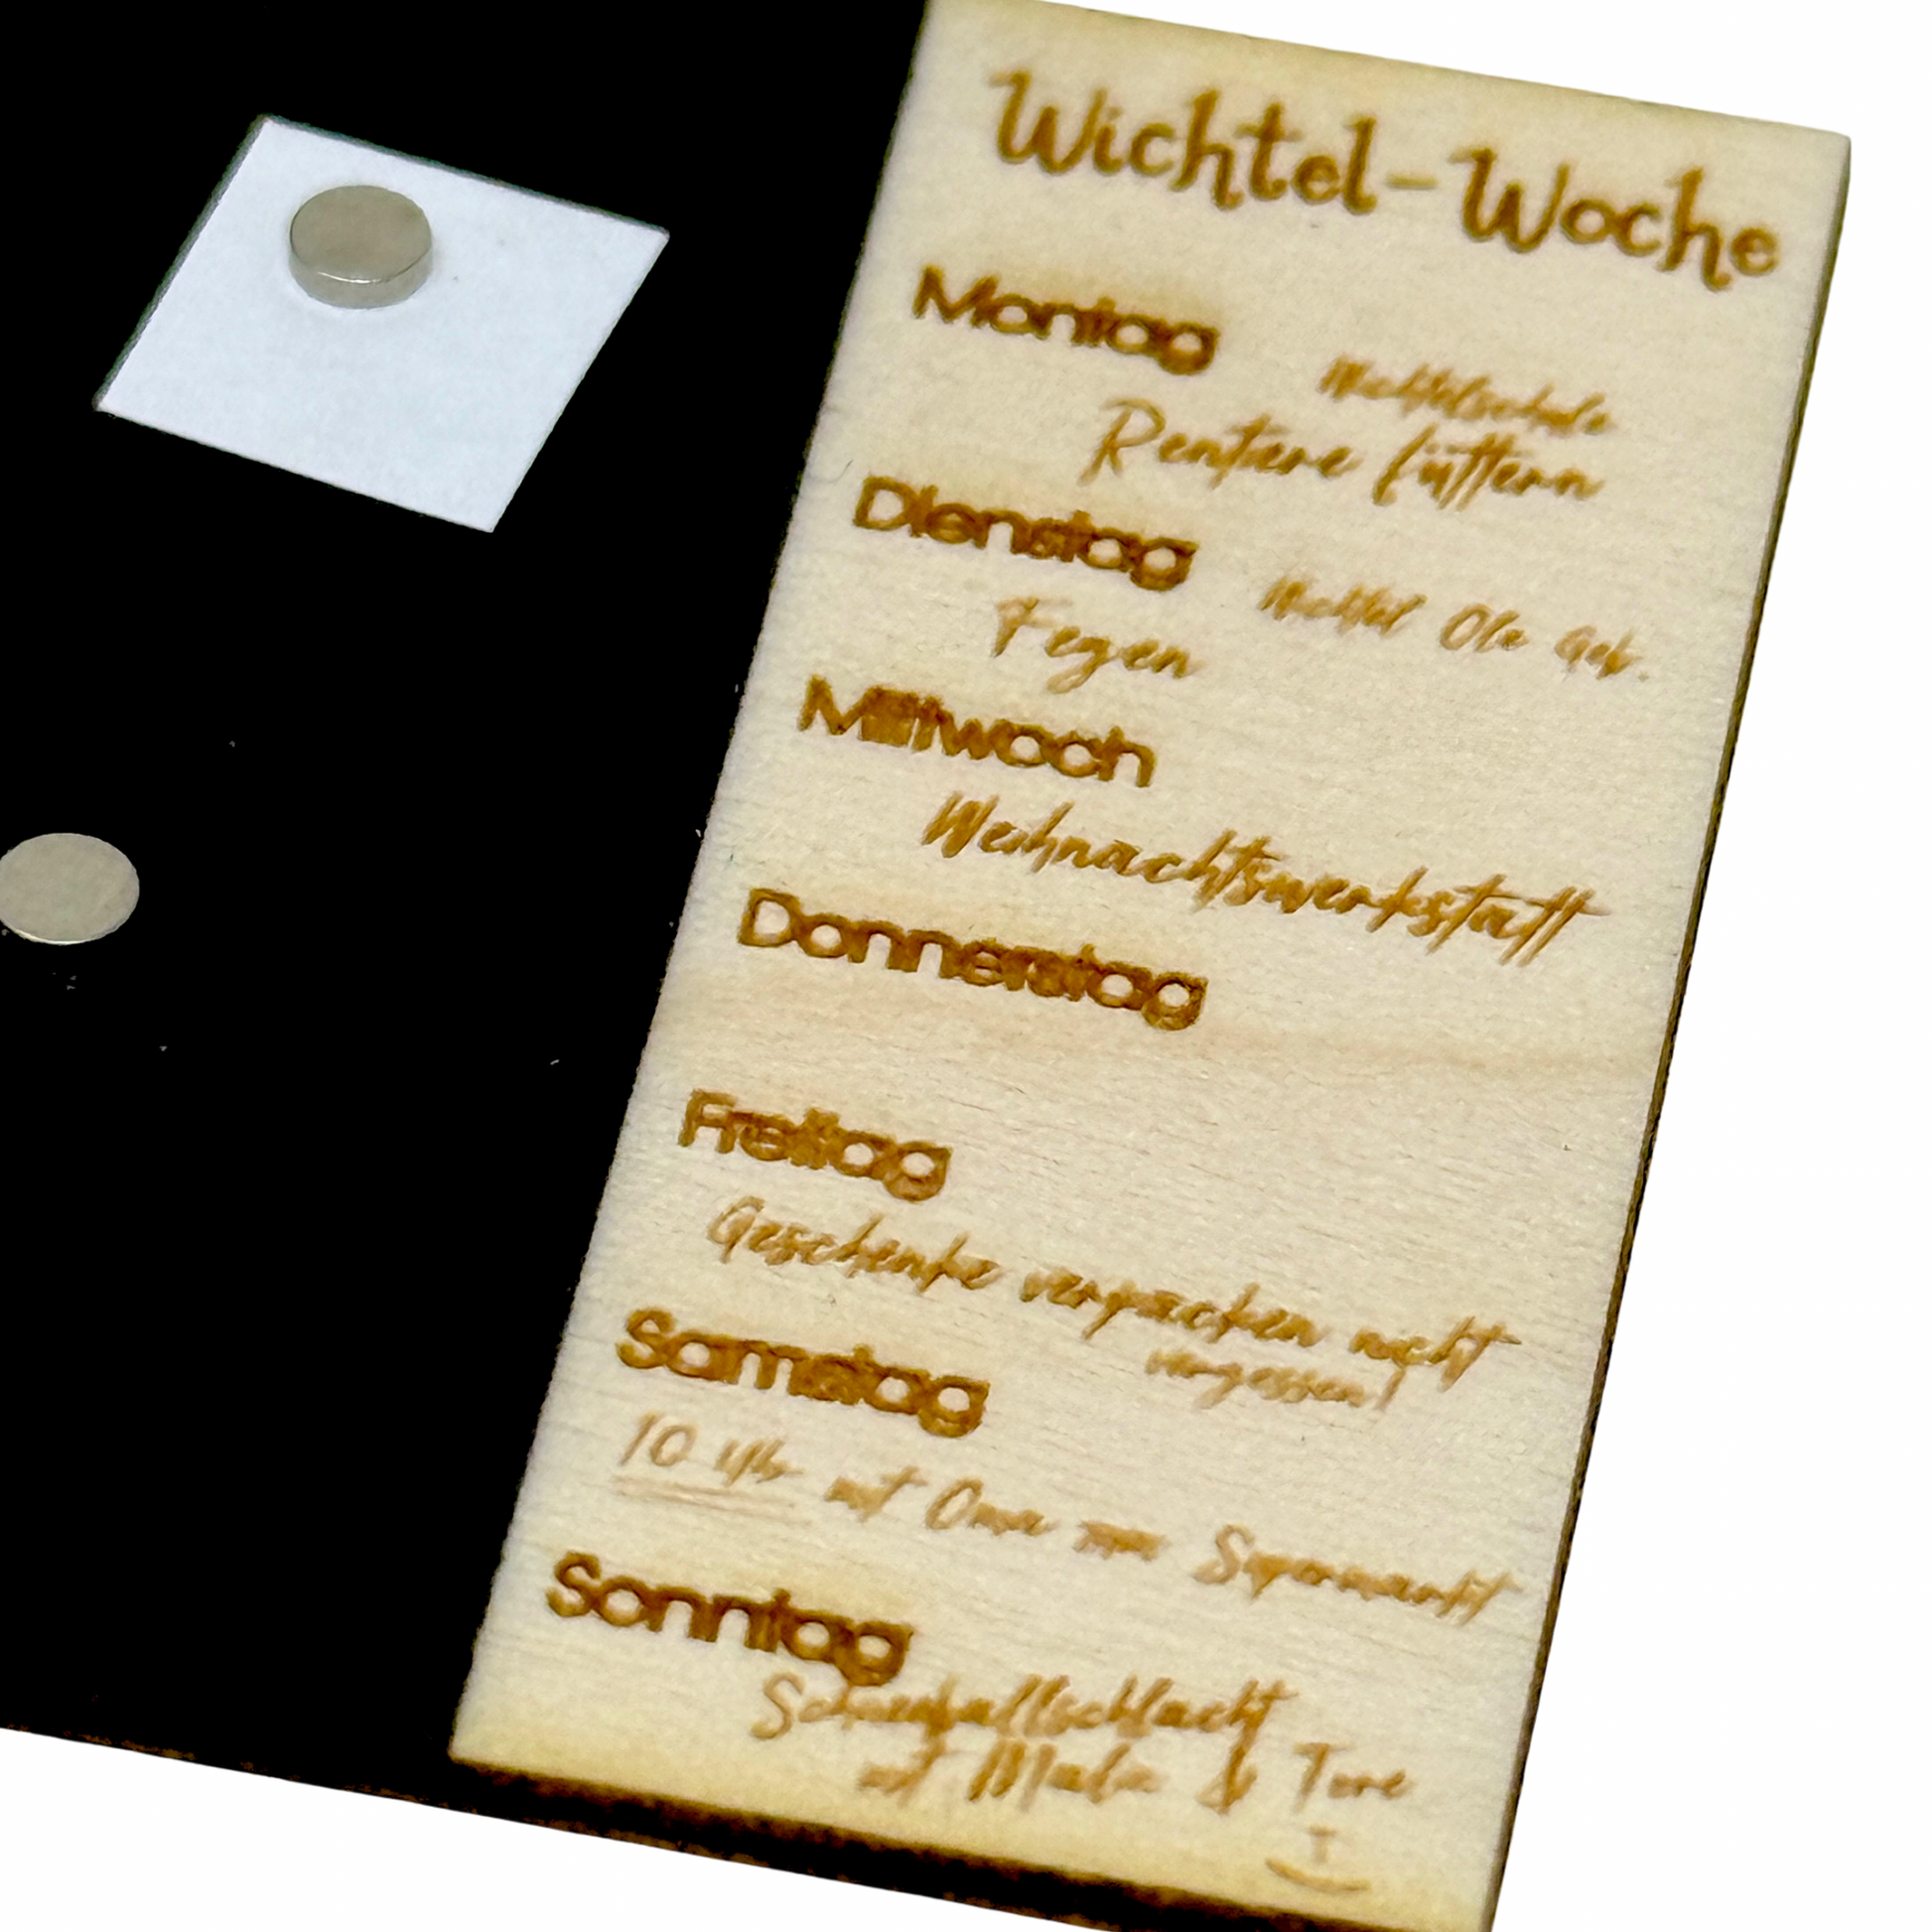 Wichtel-Woche
Montag
Wichtelschule
Rentiere füttern
Dienstag
Wichtel Ole Geb.
Fegen
Mittwoch
Weihnachtswerkstatt
Donnerstag
Freitag
Geschenke verpacken nicht
vergessen!
Samstag
10 Uhr mit Oma zum Supermarkt
Sonntag
Schneeballschlacht
mit & Tore